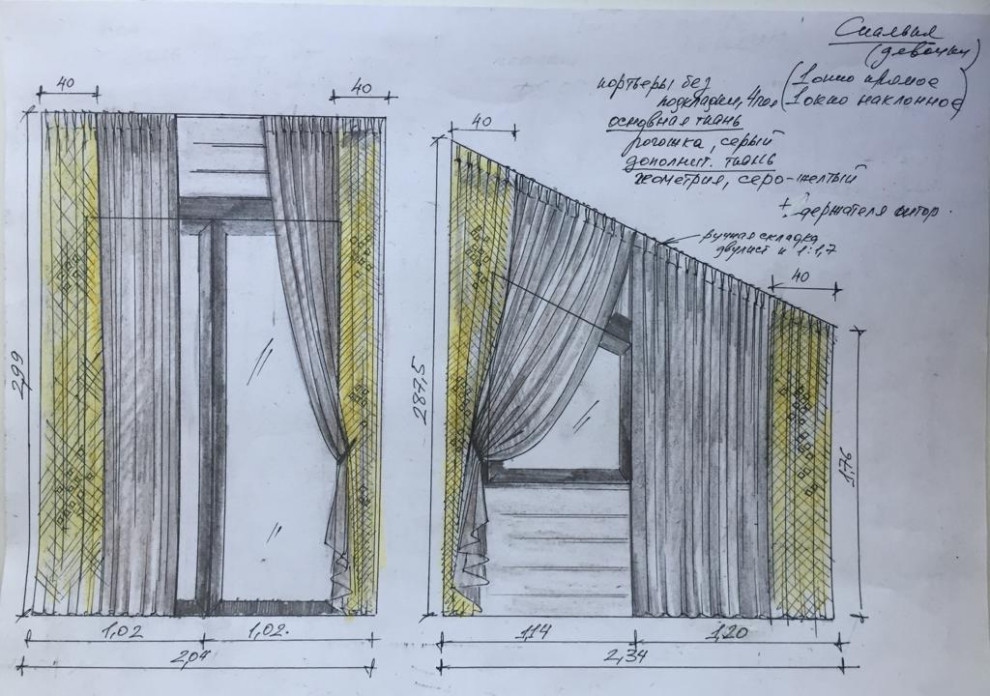 Спальня
(девочки)
портьеры без
подкладки, 4шт.
(1 окно прямое
1 окно наклонное)
основная ткань
рогожка, серый
дополнит. ткань
геометрия, серо-желтый
+ держателя штор.
ручная складка
и 1:1,7
40
40
40
40
299
287,5
1,76
1,02
1,02.
2,04
114
1,20
2,34